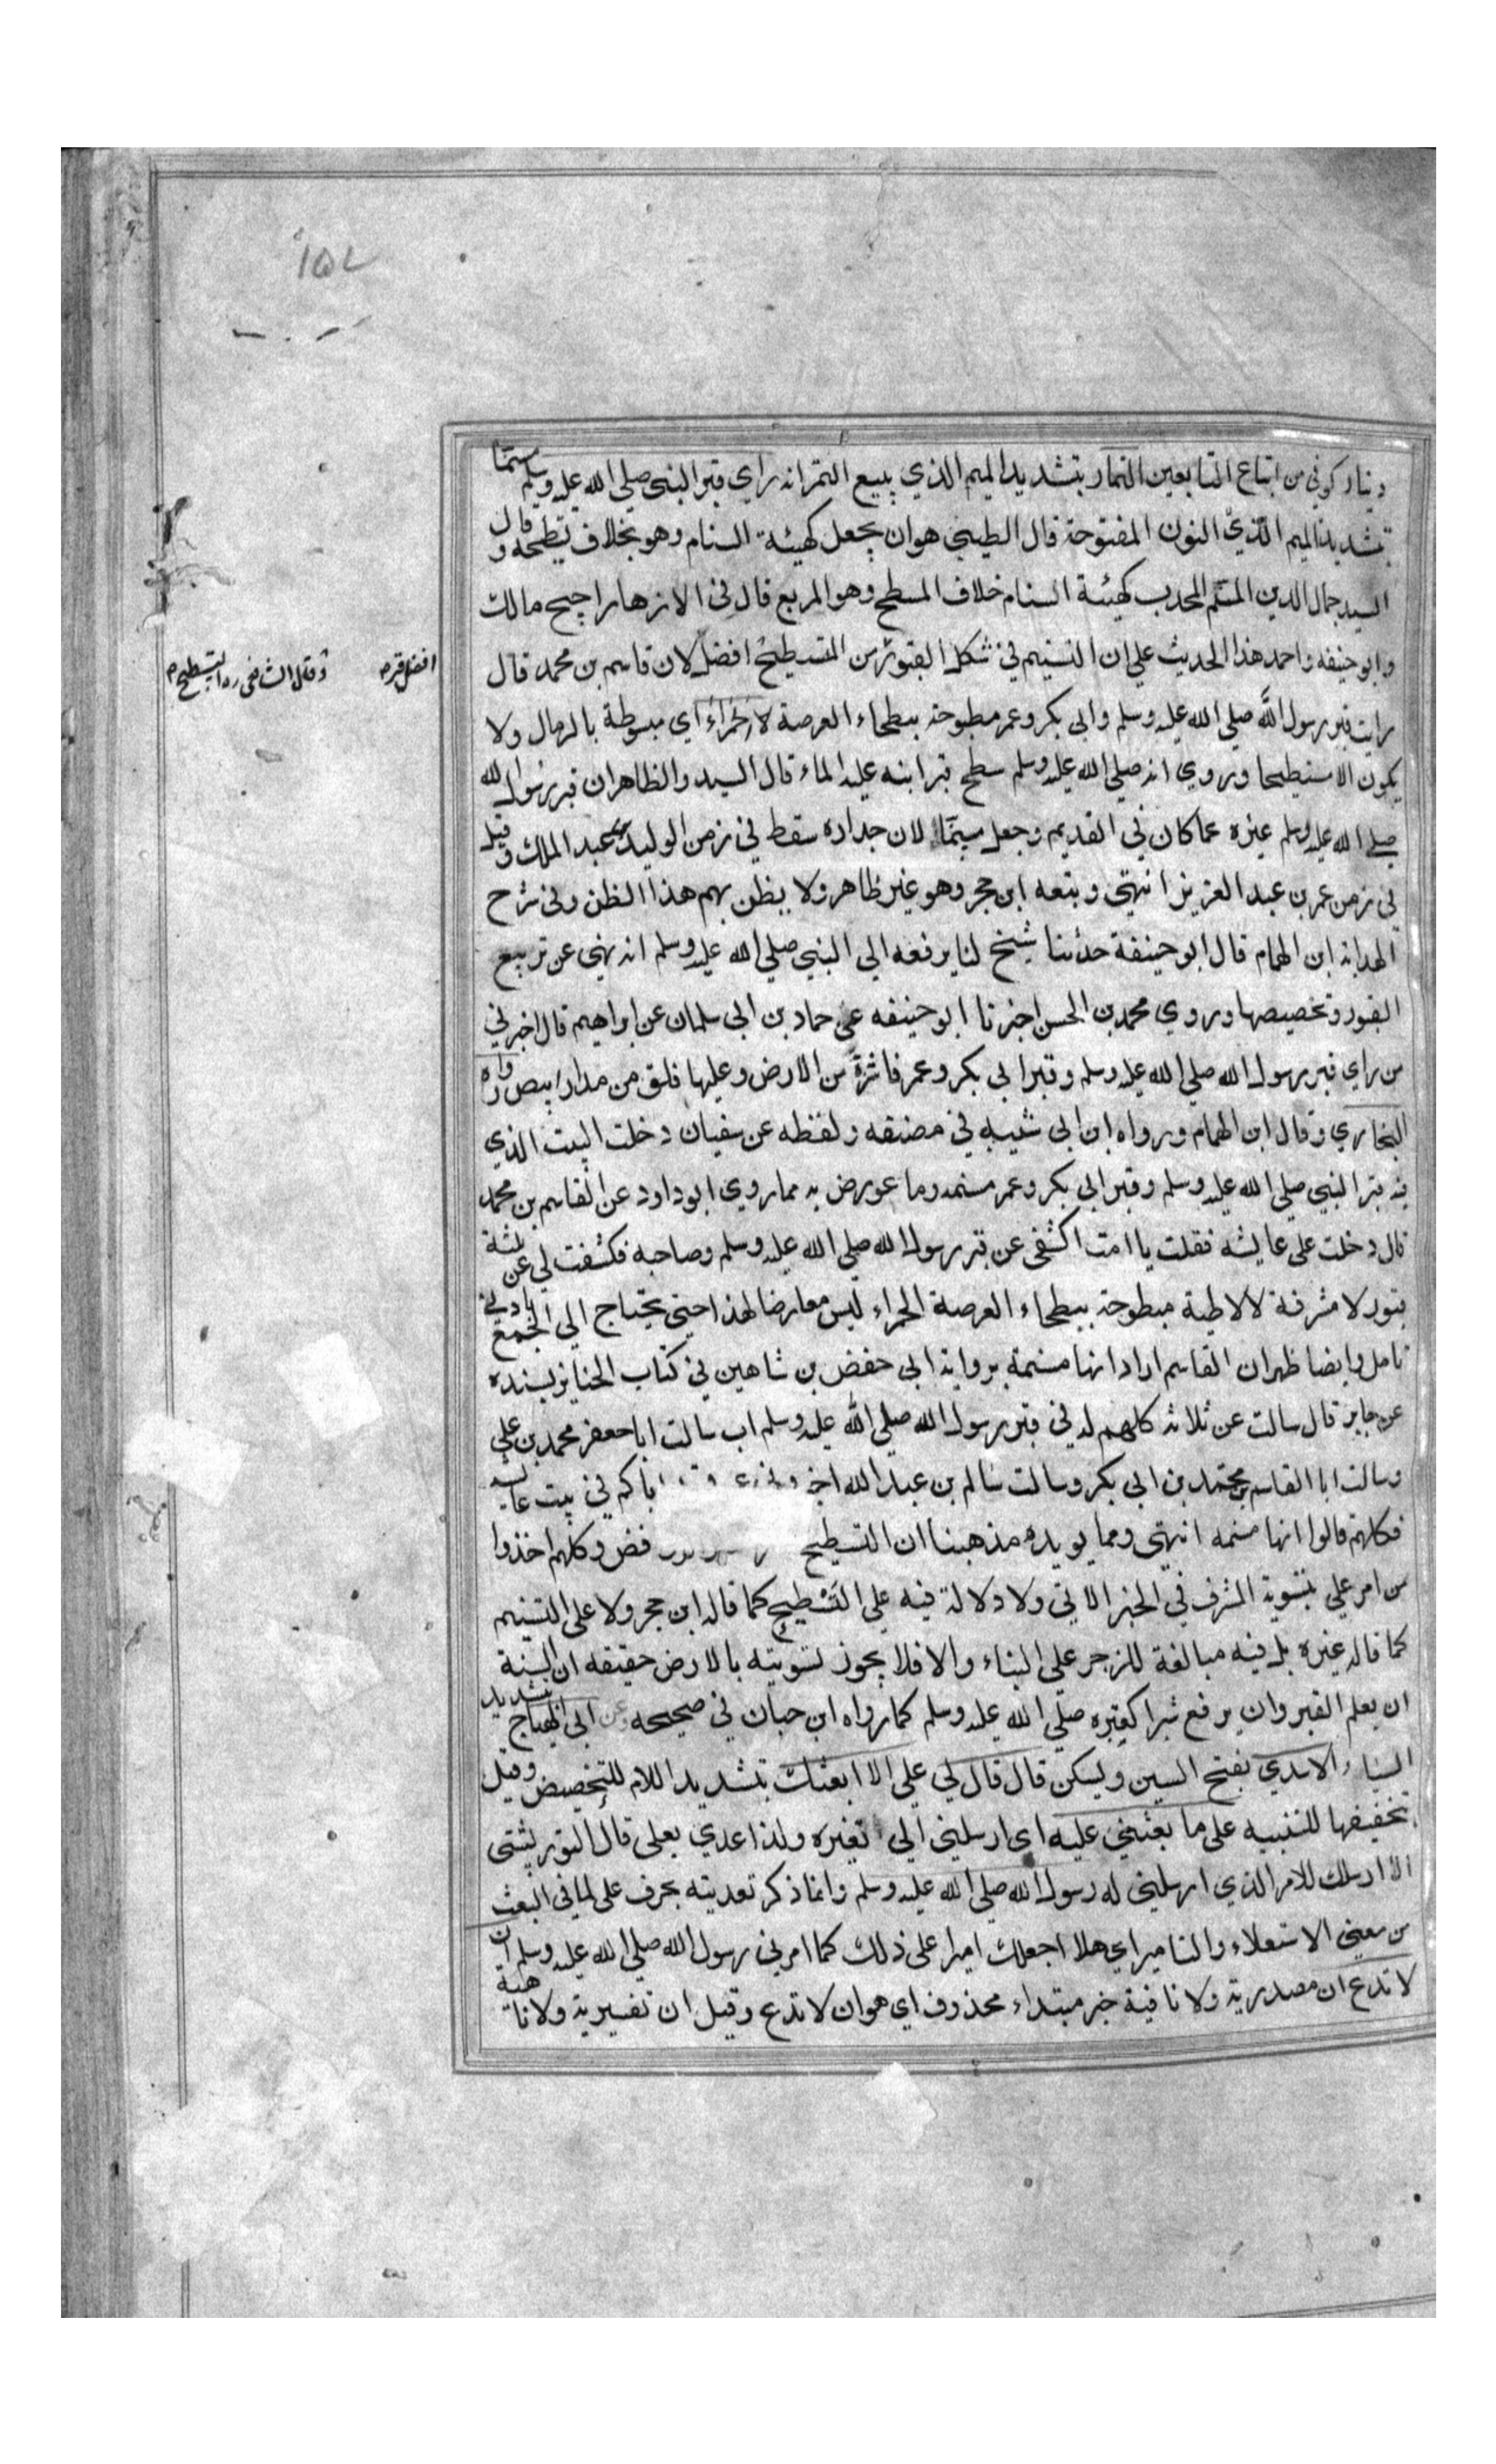 ١٥٧
دينار كوفي من اتباع التابعين التمار بتشديد الميم الذي يبيع التمر انه راي قبر النبي صلي الله عليه وسلم مسنما
بتشديد الميم الذي النون المفتوحة قال الطيبي هو ان يجعل كهيئة السنام وهو بخلاف تسطيحه وقال
السيد جمال الدين المسنم المحدب كهيئة السنام خلاف المسطح وهو المربع قال في الازهار احتج مالك
وابو حنيفه واحمد هذا الحديث علي ان التسنيم في شكل القبور من التسطيح افضل لان قاسم بن محمد قال
افضل قره
وقال الشافعي ره التسطيح م
رايت قبر رسول الله صلي الله عليه وسلم وابي بكر وعمر مطبوحة ببطحاء العرصة لا الحمراء اي مبسوطة بالرمال ولا
يكون الا مستطيحا وروي انه صلي الله عليه وسلم سطح قبر ابنه عليه الماء قال السيد والظاهر ان قبر رسول الله
صلي الله عليه وسلم غيره عما كان في القديم وجعل سنما لان جداره سقط في زمن الوليد بن عبد الملك وقيل
في زمن عمر بن عبد العزيز انتهي وبتعه ابن حجر وهو غير ظاهر ولا يظن بهم هذا الظن وفي شرح
الهداية ابن الهمام قال ابو حنيفة حدثنا شيخ لنا يرفعه الي النبي صلي الله عليه وسلم انه نهي عن تربيع
القبور وتخصيصها وروي محمد بن الحسن اخبرنا ابو حنيفه عن حماد بن ابي سلمان عن ابراهيم قال اخبرني
من راي قبر رسول الله صلي الله عليه وسلم وقبر ابي بكر وعمر ناشزة من الارض وعليها فلق من مدار ابيض رواه
البخاري وقال ابن الهمام ورواه ابن ابي شيبه في مصنفه ولفظه عن سفيان دخلت البيت الذي
فيه قبر النبي صلي الله عليه وسلم وقبر ابي بكر وعمر مسنمه وما عورض به مما روي ابو داود عن القاسم بن محمد
قال دخلت علي عايشه فقلت يا امت اكشفي عن قبر رسول الله صلي الله عليه وسلم وصاحبه فكشفت لي عن ثلثة
قبور لا مشرفة لا لاطية مبطوحة ببطحاء العرصة الحمراء ليس معارضا لهذا حتي يحتاج الي الجمع بادني
تامل وايضا ظهر ان القاسم اراد انها مسنمة برواية ابي حفض بن شاهين في كتاب الجنايز بسنده
عن جابر قال سالت عن ثلاثه كلهم له في قبر رسول الله صلي الله عليه وسلم اب سالت ابا جعفر محمد بن علي
وسالت ابا القاسم بن محمد بن ابي بكر وسالت سالم بن عبد الله ابائكم في بيت عا
فكلهم قالوا انها مسنمه انتهي ومما يويده مذهبنا ان التسطيح فض وكلهم اخذوا
من امر علي بتسوية المشرف في الخبر الاتي ولا دلالة فيه علي التسطيح كما قاله ابن حجر ولا علي التسنيم
كما قاله غيره بل فيه مبالغة للزجر علي البناء والا فلا يجوز تسويته بالارض حقيقه ان السنة
ان يعلم القبر وان يرفع شبرا كقبره صلي الله عليه وسلم كما رواه ابن حبان في صحيحه وعن ابي الهياج بتشديد
الياء الاسدي بفتح السين ويسكن قال قال لي علي الا ابعثك بتشديد اللام للتخصيص وقيل
بتخفيفها للتنبيه علي ما بعثني عليه اي ارسلني الي تغيره ولذا عدي بعلي قال التوربشتي
الا ارسلك للامر الذي ارسلني له رسول الله صلي الله عليه وسلم وانما ذكر تعديته بحرف علي لما في البعث
من معني الاستعلاء والتامير اي هلا اجعلك اميرا علي ذلك كما امرني رسول الله صلي الله عليه وسلم ان
لا تدع ان مصدرية ولا نافية خبر مبتداء محذوف اي هو ان لا تدع وقيل ان تفسيرية ولا ناهية